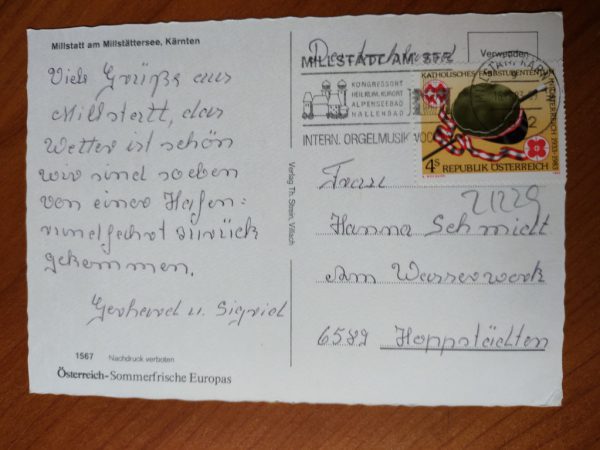 Millstatt am Millstättersee, Kärnten
Viele Grüße aus
Millstatt, das
Wetter ist schön
wir sind soeben
von einer Hafen=
rundfahrt zurück
gekommen.
Gerhard u. Sigrid
1567 Nachdruck verboten
Österreich-Sommerfrische Europas
Verlag Th. Stein, Villach
Deutschland
MILLSTATT AM SEE
KONGRESSORT
HEILKLIM. KURORT
ALPENSEEBAD
HALLENBAD
INTERN. ORGELMUSIK
KATHOLISCHES FARBSTUDENTENTUM IN ÖSTERREICH 1933-1983
4 S
REPUBLIK ÖSTERREICH
21229
Frau
Hanna Schmidt
Am Wasserwerk
6589 Hoppstädten